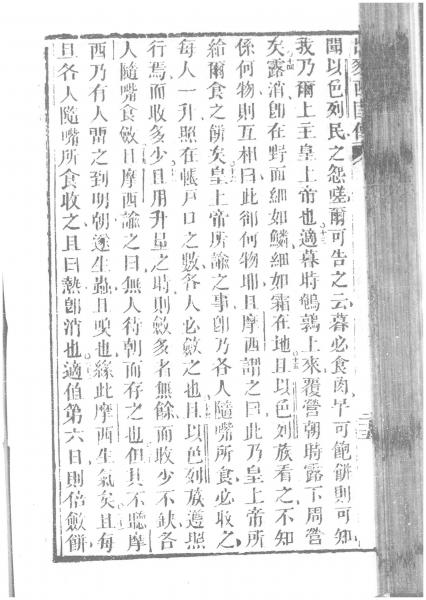 出麥西國傳
聞以色列民之怨嗟爾可告之云暮必食肉早可飽餅則可知
我乃爾上主皇上帝也適暮時鵪鶉上來覆營朝時露下周營
矣露消卽在野面細如鱗細如霜在地且以色列族看之不知
係何物則互相曰此卻何物耶且摩西謂之曰此乃皇上帝所
給爾食之餅矣皇上帝所諭之事卽乃各人隨嘴所食必收之
每人一升照在帳戶口之數各人必斂之也且以色列族遵照
行焉而收多少且用升量之時則斂多者無餘而收少不缺各
人隨嘴食斂且摩西諭之曰無人待朝而存之也但其不聽摩
西乃有人留之到明朝遂生蟲且臭也緣此摩西生氣矣且每
旦各人隨嘴所食收之且日熱卽消也適值第六日則倍斂餅